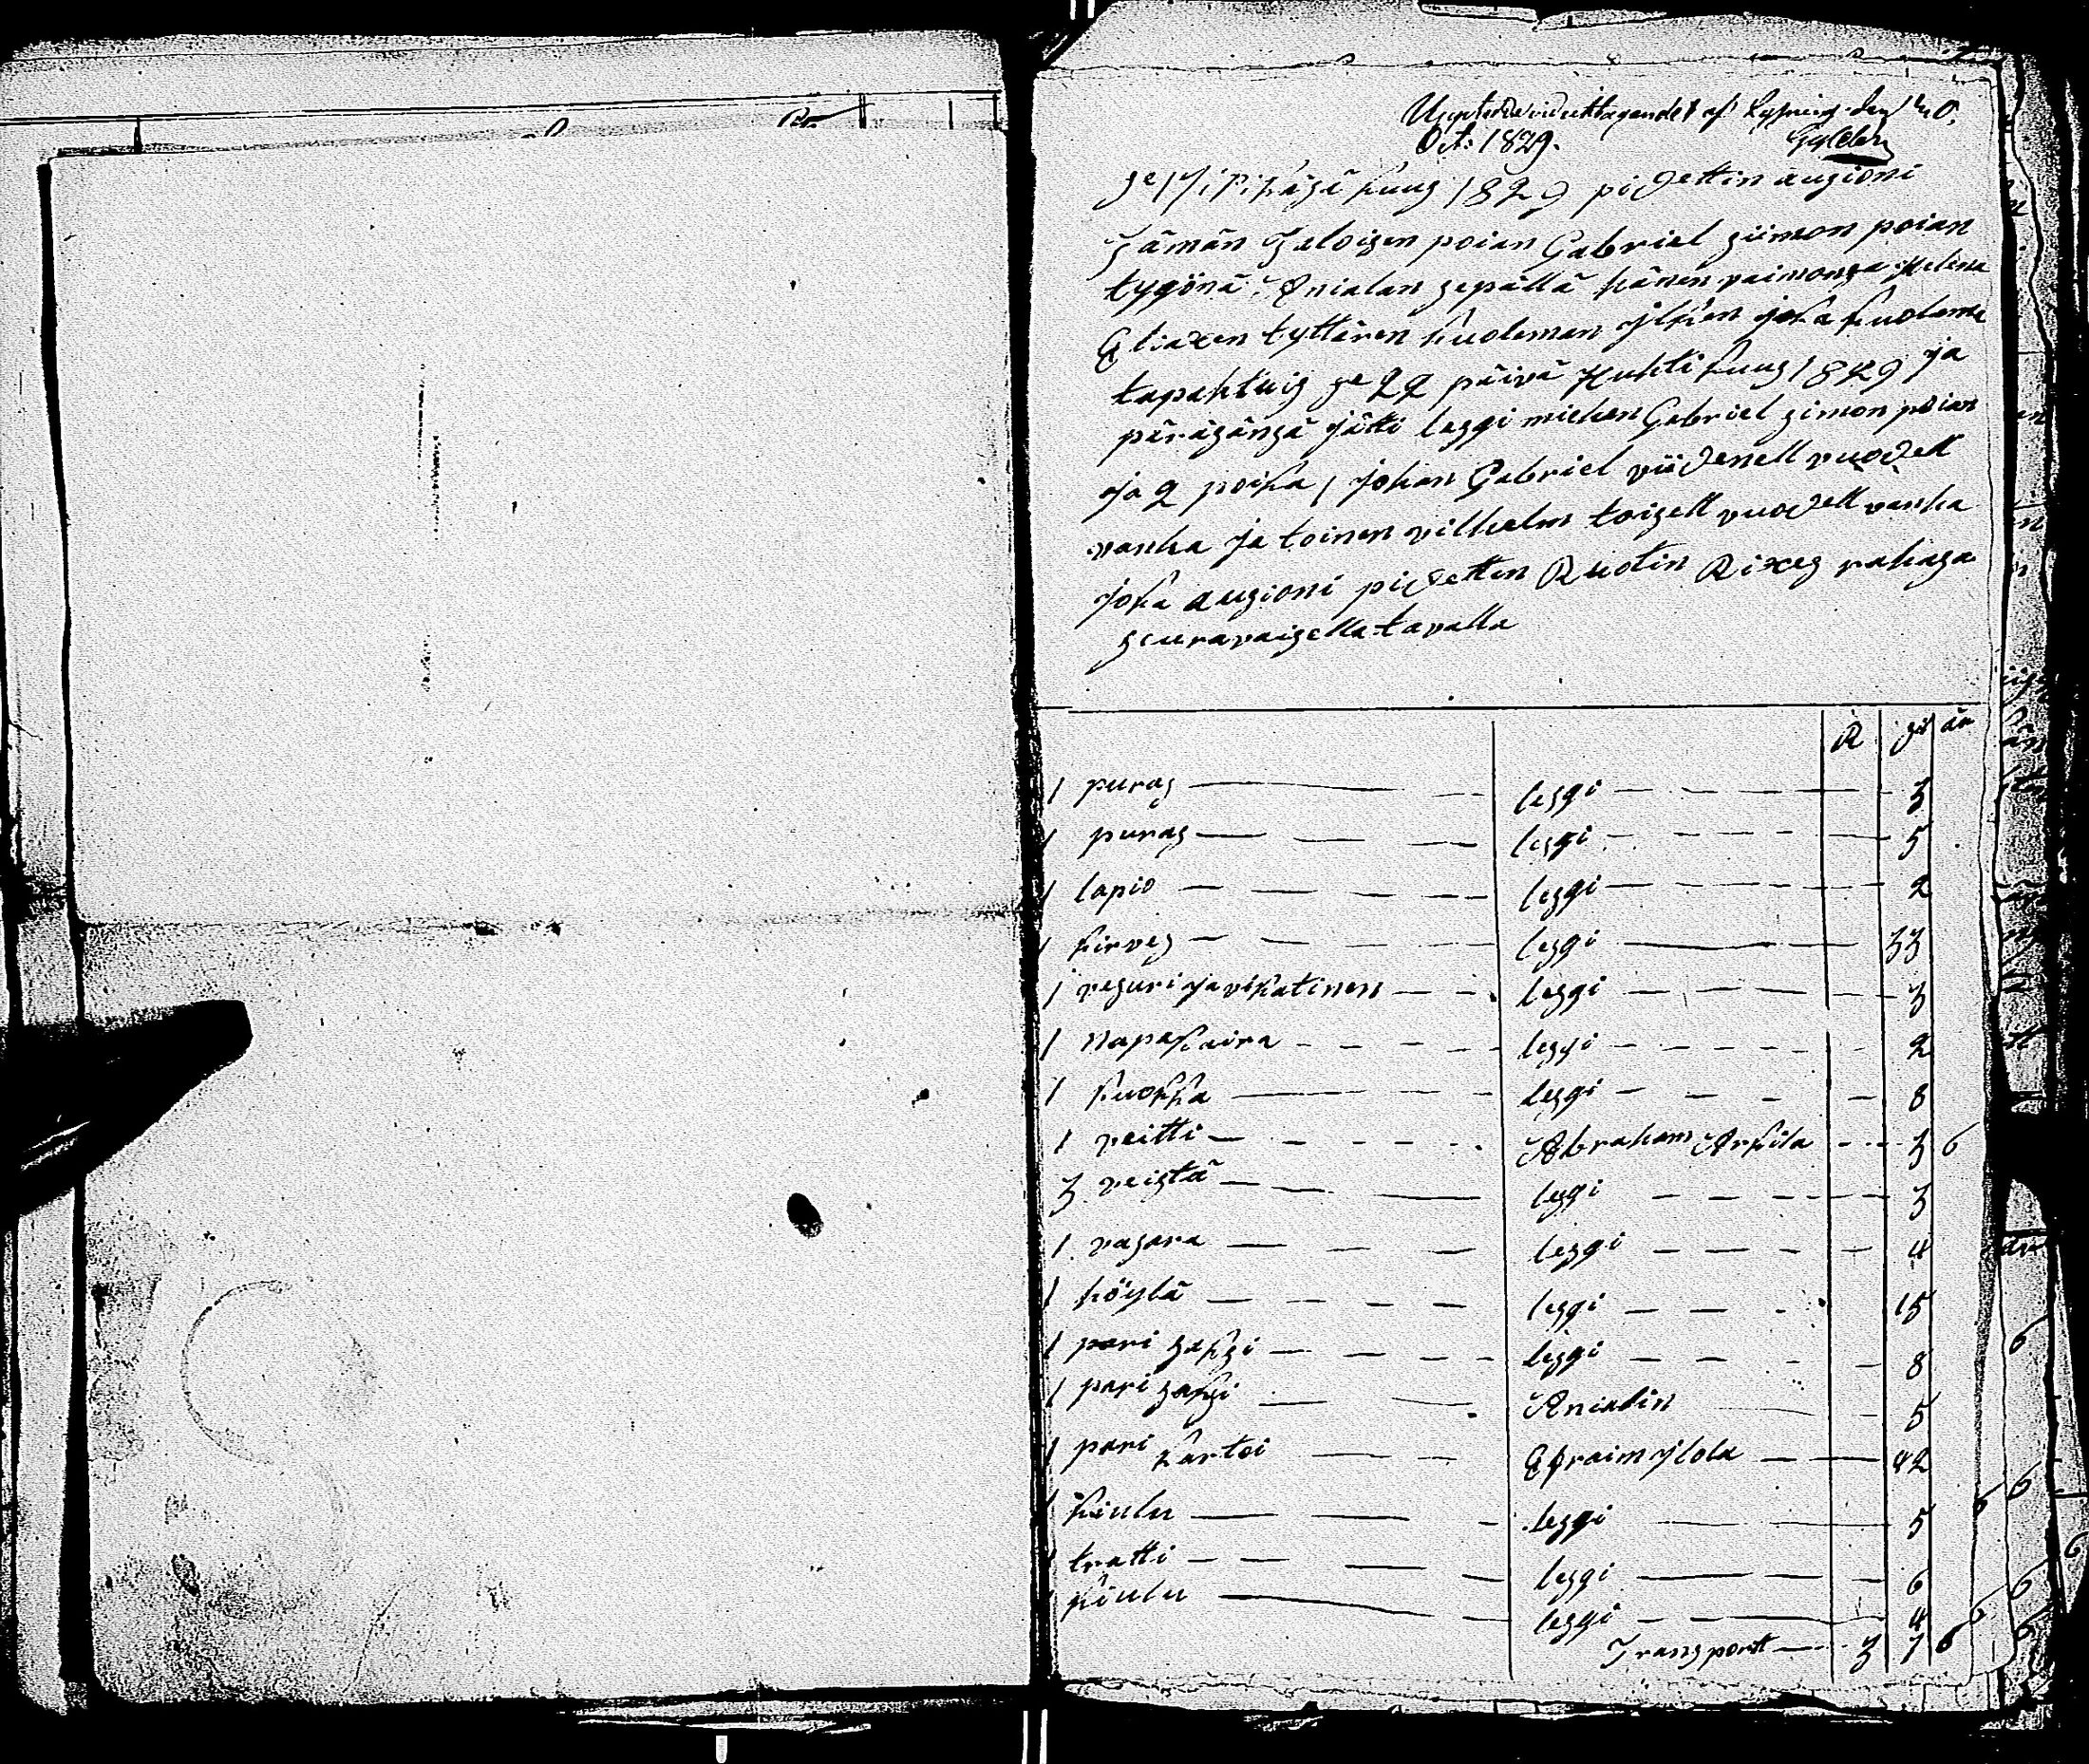 Oct. 1829.
se 17 Pi käsä kuus 1829 pidettin augioni
Jämän Jaloisen poian Gabriel siimon poian
tygönä Anialan sepällä hänen vaimonsa Helena
Eliaxen tyttären kuoleman jlken joka kuolema
tapahtuis se 22 päivä Huhti kuus 1829 ja
päräsänsä jätti leszgi miehen Gabriel simon poian
ja 2 poika 1 johan Gabriel viidenell vuodell
vanha ja toinen vilhelm toisell vuodell vanha
joka augioni pidetten Ruotin Rixes rahasa
seuravaisella tavalla
R si är
1 puras leszgi 3
1 puras leszgi 5
1 lapio leszgi 2
1 kirves leszgi 33
1 vesuri ja vikatinen leszgi 3
1 napakaira leszgi 2
1 kuokka leszgi 8
1 veitti Abraham Arkila 3 6
3 veistä leszgi 3
1 vasara leszgi 4
1 höylä leszgi 15
1 pari saksi leszgi 8
1 pari saksi Anialin 5
1 pari kartoi Efraim jlola 42
1 kiulu leszgi 5
1 tratti leszgi 6
1 kiulu leszgi 4
Transport 3 7 6